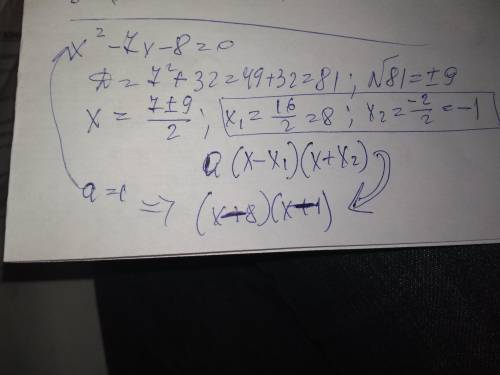 x² - 7x - 8 = 0
D = 7² + 32 = 49 + 32 = 81 ; √81 = ±9
x = (7 ± 9)/2 ; x₁ = 16/2 = 8 ; x₂ = -2/2 = -1
a (x - x₁)(x + x₂)
a = 1
=> (x - 8)(x + 1)